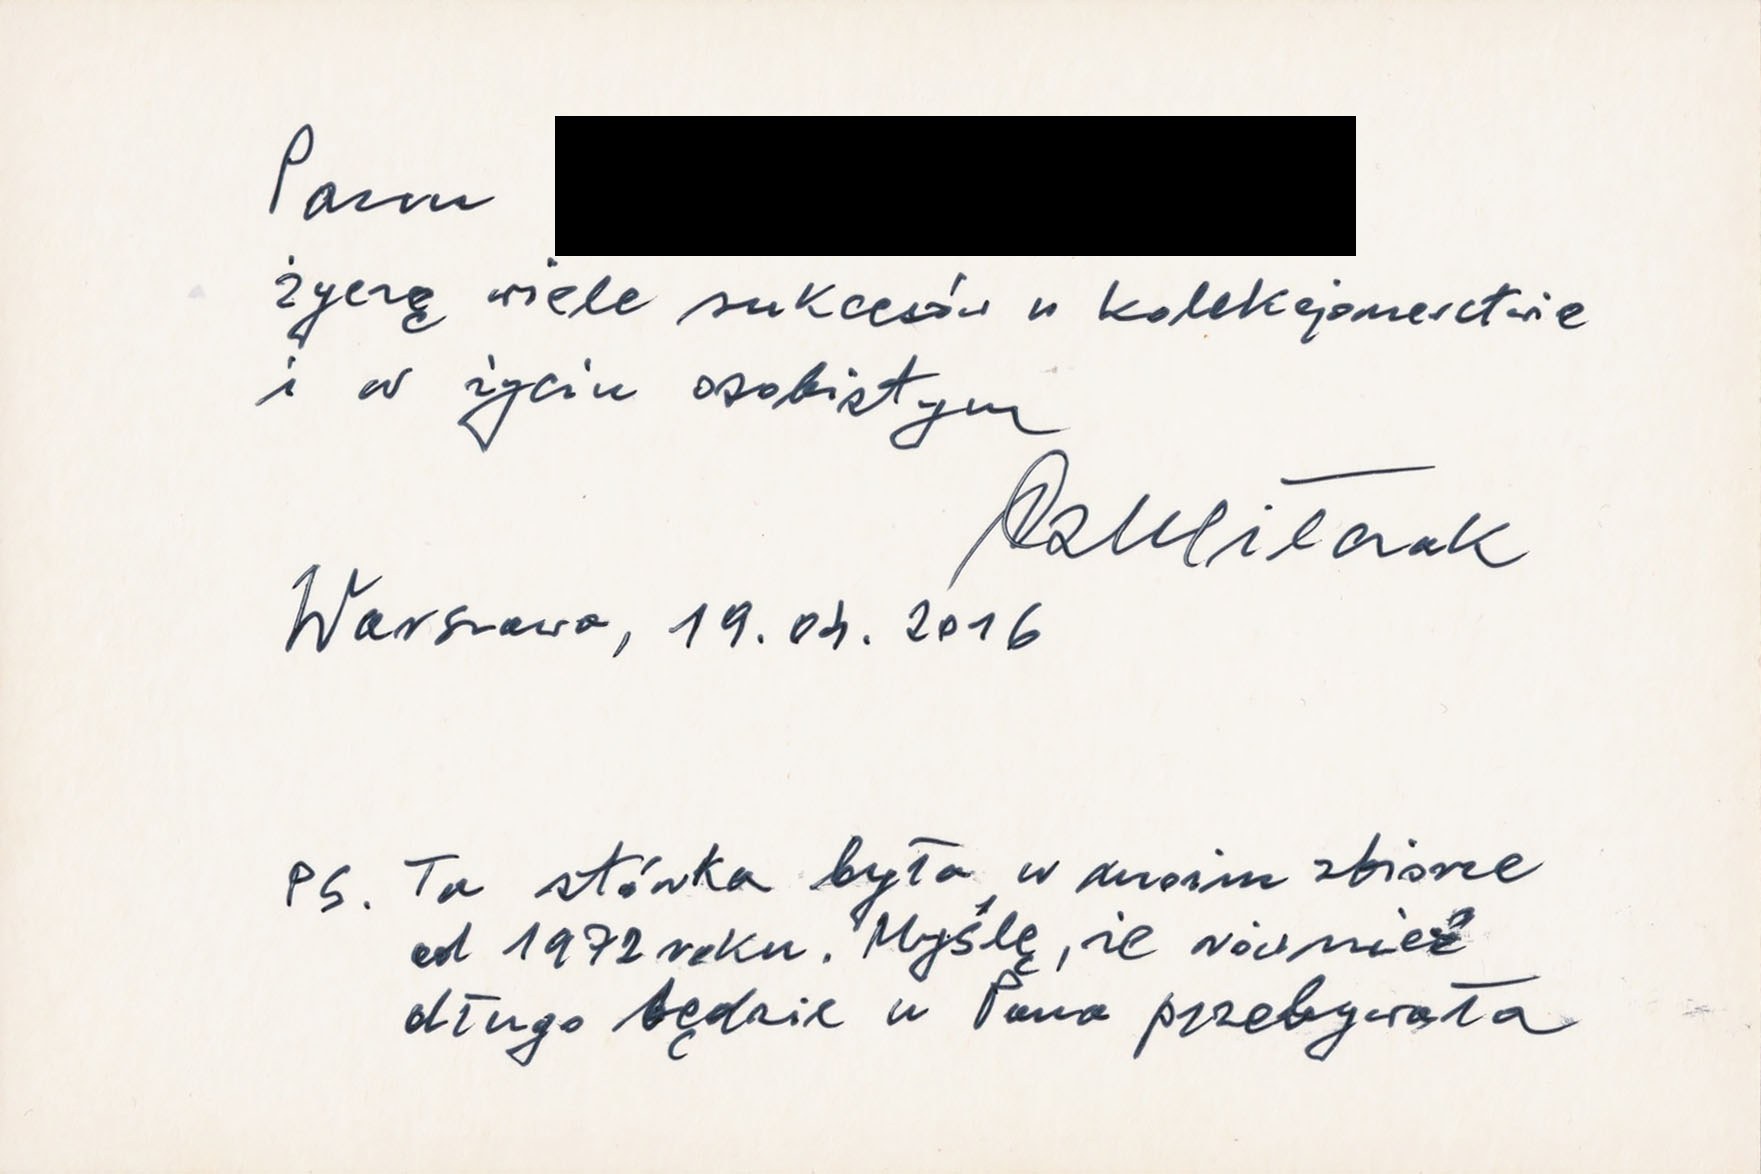 Panu
życzę wiele sukcesów w kolekcjonerstwie
i w życiu osobistym
Warszawa, 19.04.2016
PS. Ta stówka była w moim zbiorze
od 1972 roku. Myślę, że również
długo będzie u Pana przebywała